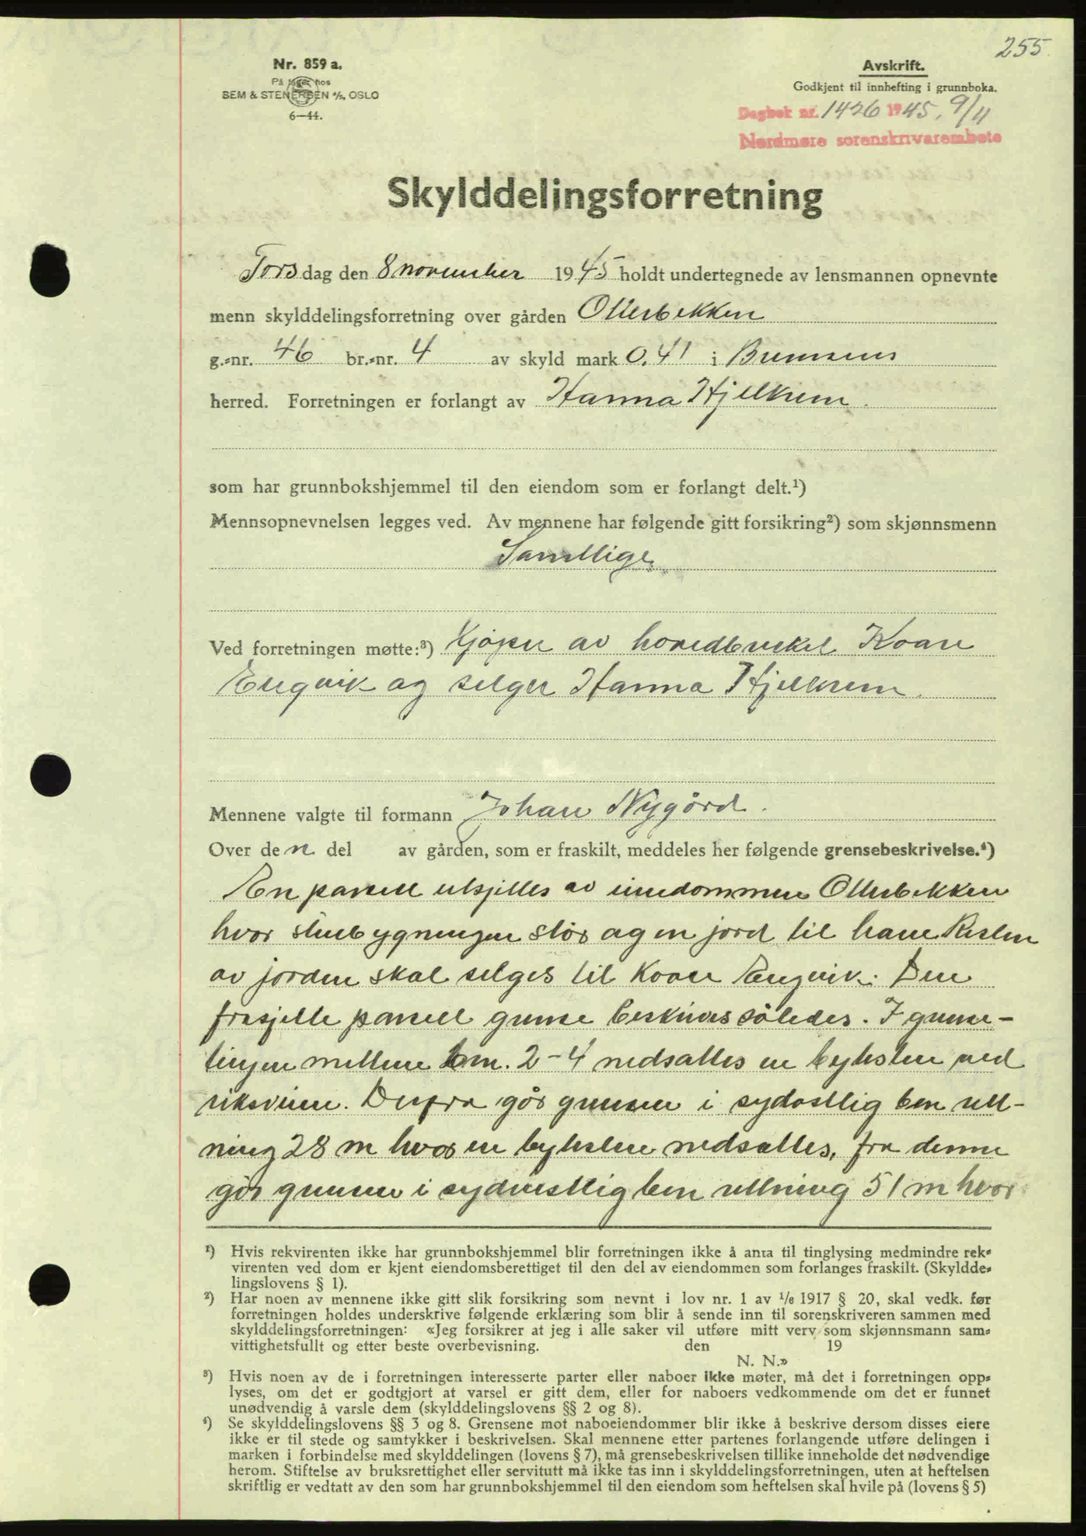 255
Nr. 859 a.
På lager hos
SEM & STENERSEN A/S, OSLO
6—44.
Avskrift.
Godkjent til innhefting i grunnboka.
Dagbok nr. 1426 1945, 9/11
Nordmøre sorenskrivarembete
Skylddelingsforretning
Torsdag den 8 november 1945 holdt undertegnede av lensmannen opnevnte
menn skylddelingsforretning over gården Otterbekken
g.-nr. 46 br.-nr. 4 av skyld mark 0,41 i Bremsnes
herred. Forretningen er forlangt av Hanna Hjelkrem.
som har grunnbokshjemmel til den eiendom som er forlangt delt.¹)
Mennsopnevnelsen legges ved. Av mennene har følgende gitt forsikring²) som skjønnsmenn
Samtlige.
Ved forretningen møtte:³) Kjøper av hovedbruket Koare
Engvik og selger Hanna Hjelkrem.
Mennene valgte til formann Johan Nygård.
Over den del av gården, som er fraskilt, meddeles her følgende grensebeskrivelse.⁴)
En parsell utsjilles av eiendommen Otterbekken
hvor stuebygningen står og en jord til have Resten
av jorden skal selges til Koare Engvik. Den
frasjilte parsell grense beskrives således. I grense-
lingen mellem bm. 2-4 nedsattes en bytesten ved
riksveien. Derfra går grensen i sydøstlig ben ret-
ning 28 m hvor en bytesten nedsattes, fra denne
går grensen i sydvestlig ben retning 51 m hvor
¹) Hvis rekvirenten ikke har grunnbokshjemmel blir forretningen ikke å anta til tinglysing medmindre rek-
virenten ved dom er kjent eiendomsberettiget til den del av eiendommen som forlanges fraskilt. (Skyldde-
lingslovens § 1).
²) Har noen av mennene ikke gitt slik forsikring som nevnt i lov nr. 1 av 1/6 1917 § 20, skal vedk. før
forretningen holdes underskrive følgende erklæring som blir å sende inn til sorenskriveren sammen med
skylddelingsforretningen: «Jeg forsikrer at jeg i alle saker vil utføre mitt verv som skjønnsmann sam-
vittighetsfullt og etter beste overbevisning. den 19
N. N.»
³) Hvis noen av de i forretningen interesserte parter eller naboer ikke møter, må det i forretningen opp-
lyses, om det er godtgjort at varsel er gitt dem, eller for naboers vedkommende om det er funnet
unødvendig å varsle dem (skylddelingslovens §§ 2 og 8).
⁴) Se skylddelingslovens §§ 3 og 8. Grensene mot naboeiendommer blir ikke å beskrive dersom disses eiere
ikke er til stede og samtykker i beskrivelsen. Skal mennene etter partenes forlangende utføre delingen i
marken i forbindelse med skylddelingen (lovens § 7), må grensebeskrivelsen tillike inneholde det nødvendige
herom. Stiftelse av bruksrettighet eller servitutt må ikke tas inn i skylddelingsforretningen, uten at heftelsen
skriftlig er vedtatt av den som har grunnbokshjemmel til den eiendom som heftelsen skal hvile på (lovens § 5)